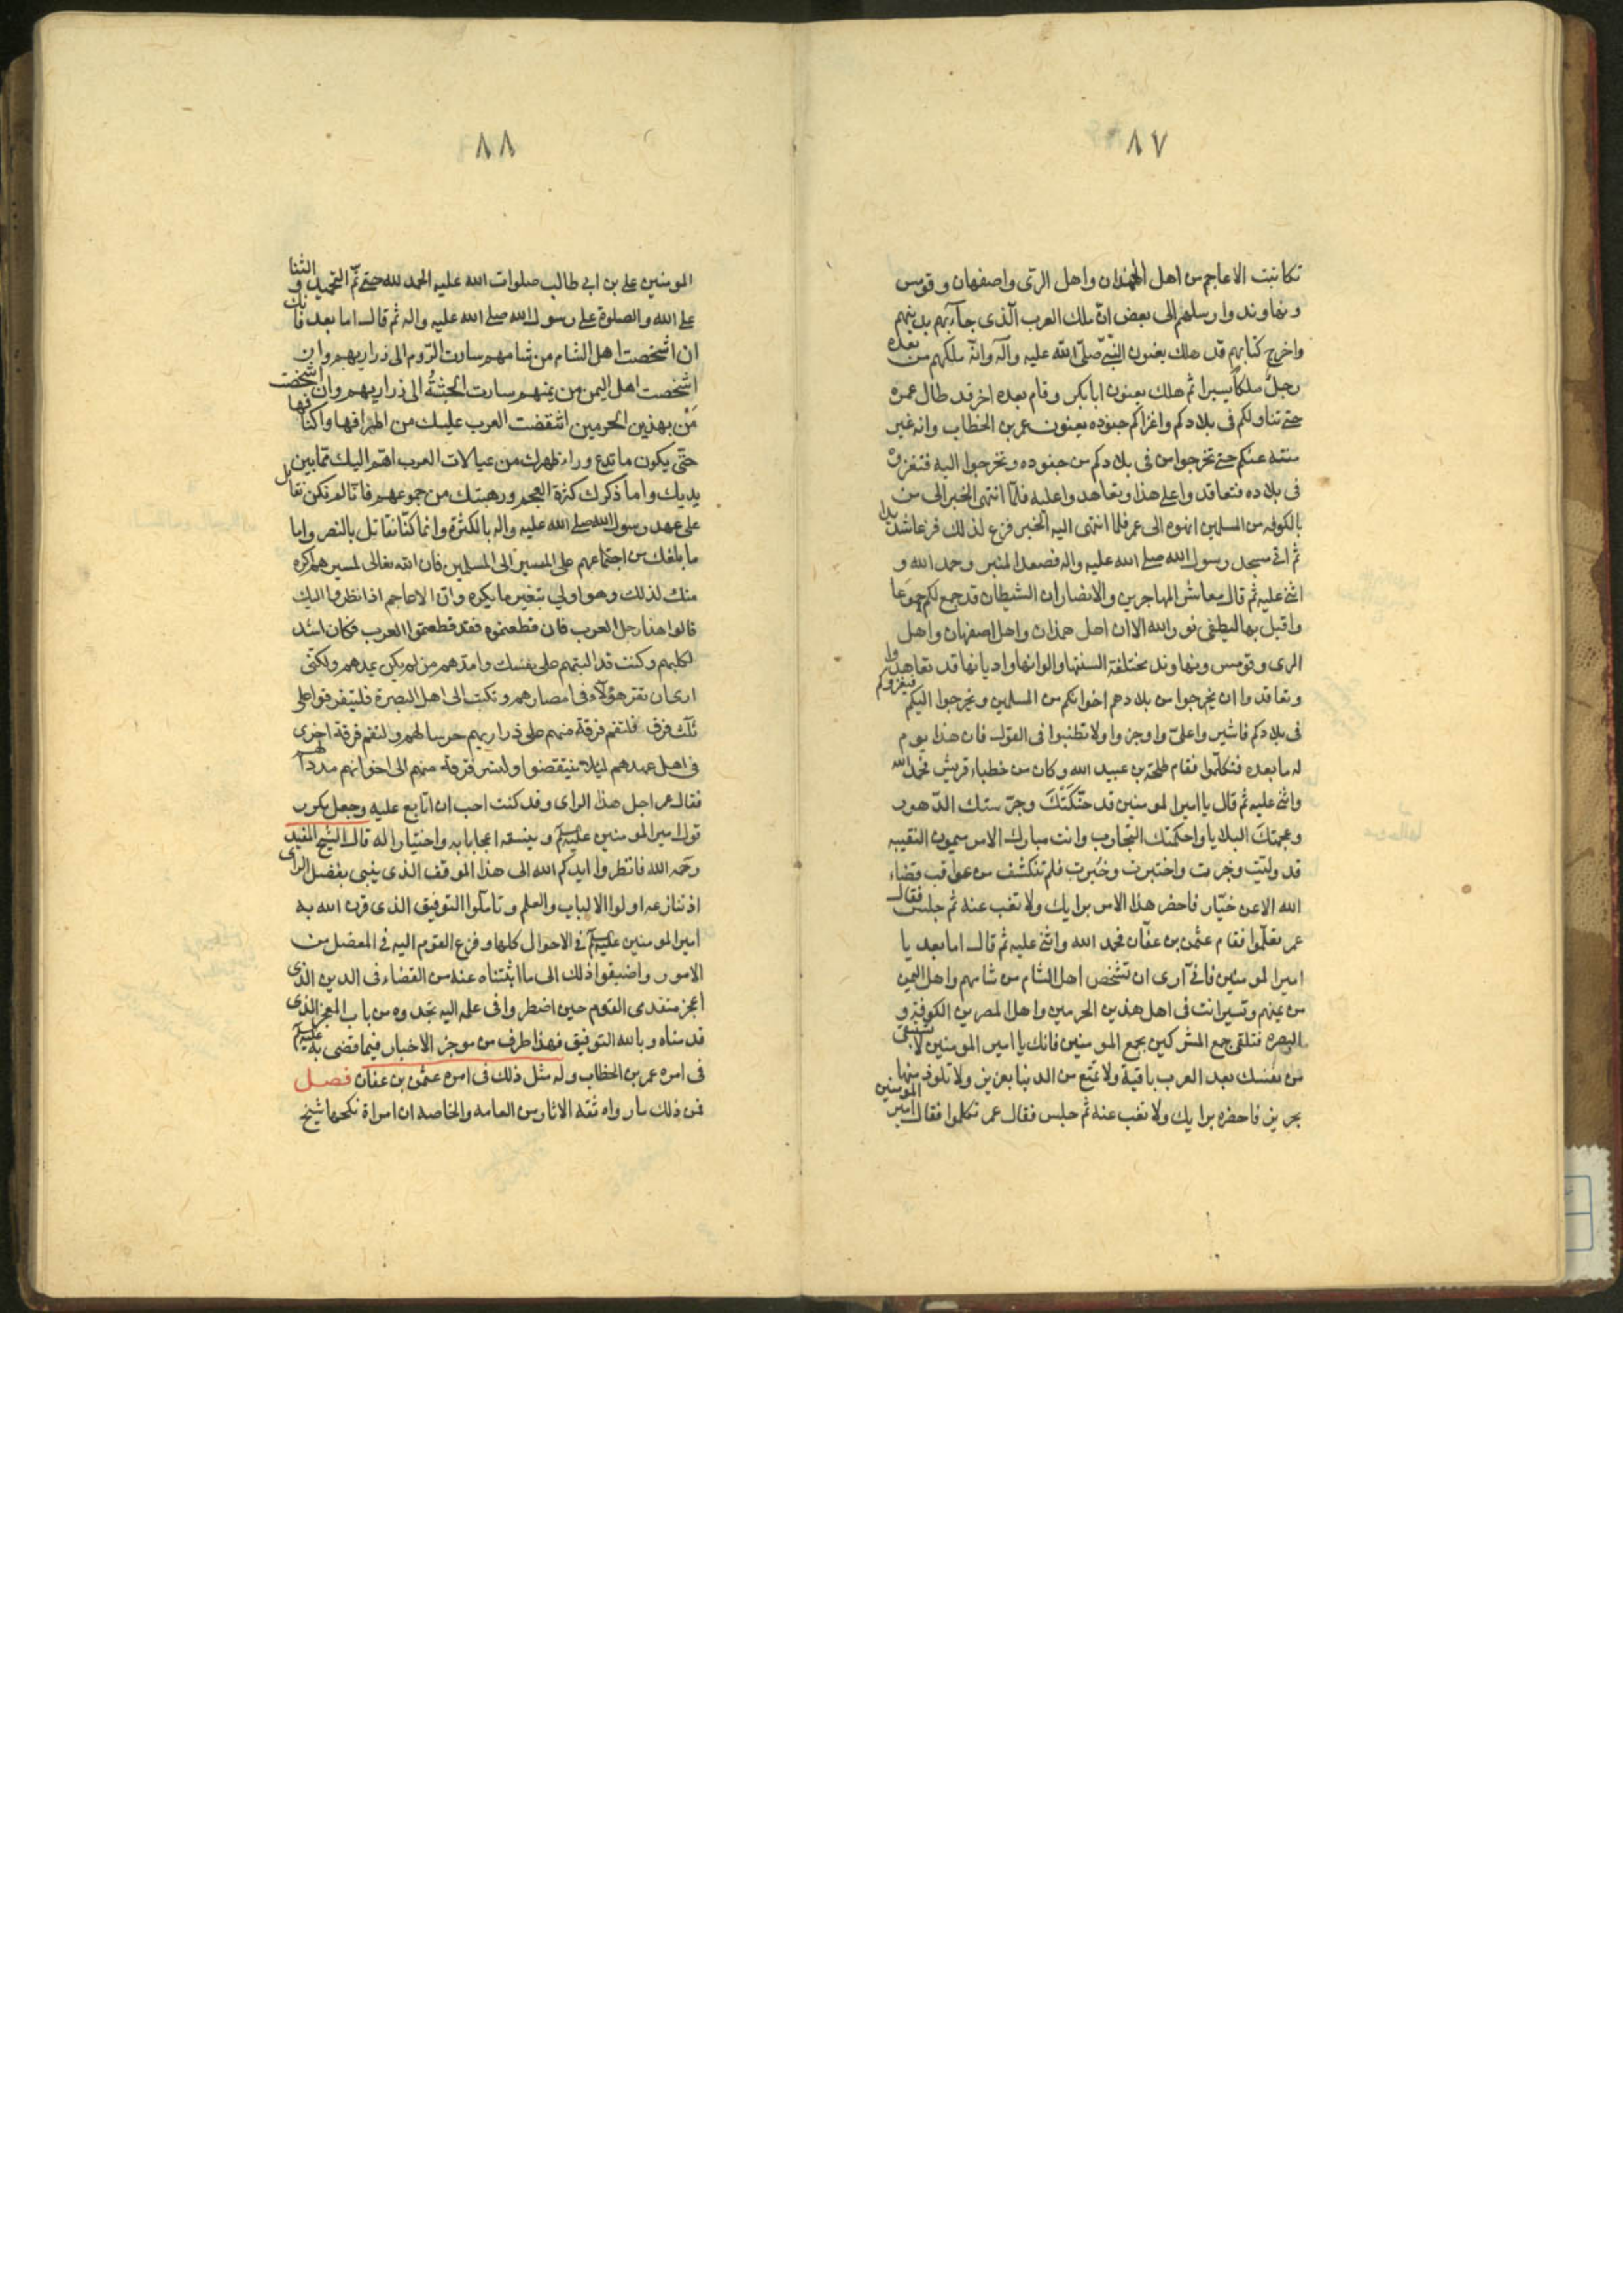 ٨٧
تكاتبت الاعاجم من اهل الهمذان واهل الرّى واصفهان وقومس
ونهاوند وارسلهم الى بعض انّ ملك العرب الّذى جآءهم بدينهم
واخرج كتابهم قد هلك يعنون النبىّ صلّى اللّه عليه وآله وانّه ملكهم من بعده
رجل ملكاً يسيرا ثم هلك يعنون ابا بكر وقام بعده اخر قد طال عمره
حتى تناولكم فى بلادكم واغزاكم جنوده يعنون عمر بن الخطاب وانه غير
منته عنكم حتى تخرجوا من فى بلادكم من جنوده وتخرجوا اليه فتغزوْه
فى بلاده فتعاقدوا على هذا وتعاهدوا عليه فلمّا انتهى الخبر الى من
بالكوفه من المسلمين انهوه الى عمر فلما انتهى اليه الخبر فزع لذلك فزعا شديدا
ثم اتى مسجد رسول الله صلى الله عليه واله فصعد المنبر وحمد الله و
اثنى عليه ثم قال معاشر المهاجرين والانصار ان الشيطان قد جمع لكم جموعا
واقبل بها ليطفى نور الله الا ان اهل همذان واهل اصفهان واهل
الرى وقومس ونهاوند مختلفة السنتها والوانها واديانها قد تعاهدوا
وتعاقدوا ان يخرجوا من بلادهم اخوانكم من المسلمين ويخرجوا اليكم فيغزوكم
فى بلادكم فاشيروا علىّ واوجزوا ولا تطنبوا فى القول فان هذا يوم
له ما بعده فتكلّموا فقام طلحة بن عبيد الله وكان من خطباء قريش فحمد الله
واثنى عليه ثم قال يا امير المومنين قد حنّكَتْكَ وجرّستك الدّهور
وعجمتك البلايا واحكمتك التجارب وانت مبارك الامر ميمون النقيبه
قد ولّيت وخبرت واختبرت وخُبرت فلم تنكشف من عواقب قضاء
الله الا عن خيار فاحضر هذا الامر برايك ولا تغب عنه ثم جلس فقال
عمر تكلّموا فقام عثمن بن عفّان فحمد الله واثنى عليه ثم قال اما بعد يا
امير المومنين فانّى ارى ان تشخص اهل الشام من شامهم واهل اليمن
من يمنهم وتسير انت فى اهل هذين الحرمين واهل المصرين الكوفة و
البصره فتلقى جمع المشركين بجمع المومنين فانك يا امير المومنين لا تستبقى
من نفسك بعد العرب باقية ولا تمتع من الدنيا بعزيز ولا تلوذ منها
بحريز فاحضره برايك ولا تغب عنه ثم جلس فقال عمر تكلموا فقال امير المومنين
٨٨
المومنين على بن ابى طالب صلوات الله عليه الحمد لله حتى تمّ التحميد والثنا
على الله والصلوة على رسول الله صلى الله عليه واله ثم قال اما بعد فانك
ان اشخصت اهل الشام من شامهم سارت الرّوم الى ذراريهم وان
اشخصت اهل اليمن من يمنهم سارت الحبشةُ الى ذراريهم وان اشخصت
مَنْ بهذين الحرمين انتقضت العرب عليك من اطرافها واكنافها
حتّى يكون ما تدع وراء ظهرك من عيالات العرب اهم اليك ممّا بين
يديك واما ذكرك كثرة العجم ورهبتك من جموعهم فانّا لم نكن نقاتل
على عهد رسول الله صلى الله عليه واله بالكثرة وانما كنّا نقاتل بالنصر واما
ما بلغك من اجتماعهم على المسير الى المسلمين فان الله تعالى لمسيرهم اكره
منك لذلك وهو اولى بتغيير ما يكره وان الاعاجم اذا نظروا اليك
قالوا هذا رجل العرب فان قطعتموه فقد قطعتم العرب فكان اشد
لكلبهم وكنت قد البتهم على نفسك وامدّهم من لم يكن يمدهم ولكنّى
ارى ان تقر هؤلاء فى امصارهم وتكتب الى اهل البصرة فليتفرقوا على
ثلث فرق فلتقم فرقة منهم على ذراريهم حرسا لهم ولتقم فرقة اخرى
فى اهل عهدهم لئلا ينتقضوا ولتسر فرقة منهم الى اخوانهم مددا لهم
فقال عمر اجل هذا الراى وقد كنت احب ان اتابع عليه وجعل يكرر
قول امير المومنين عليه السلم وينسقه اعجابا به واختيارا له قال الشيخ المفيد
رحمه الله فانظروا ايدكم الله الى هذا الموقف الذى ينبى بفضل الراى
اذ تنازعه اولوا الالباب والعلم وتاملوا التوفيق الذى قرن الله به
امير المومنين عليه السلم فى الاحوال كلها وفزع القوم اليه فى المعضل من
الامور واضيفوا ذلك الى ما اثبتناه عنه من القضاء فى الدين الذى
اعجز متقدمى القوم حين اضطروا فى علمه اليه تجدوه من باب المعجز الذى
قدمناه وبالله التوفيق فهذا طرف من موجز الاخبار فيما قضى به عليه السلم
فى امره عمر بن الخطاب وله مثل ذلك فى امره عثمن بن عفان فصل
فمن ذلك ما رواه نقلة الاثار من العامه والخاصه ان امراة نكحها شيخ